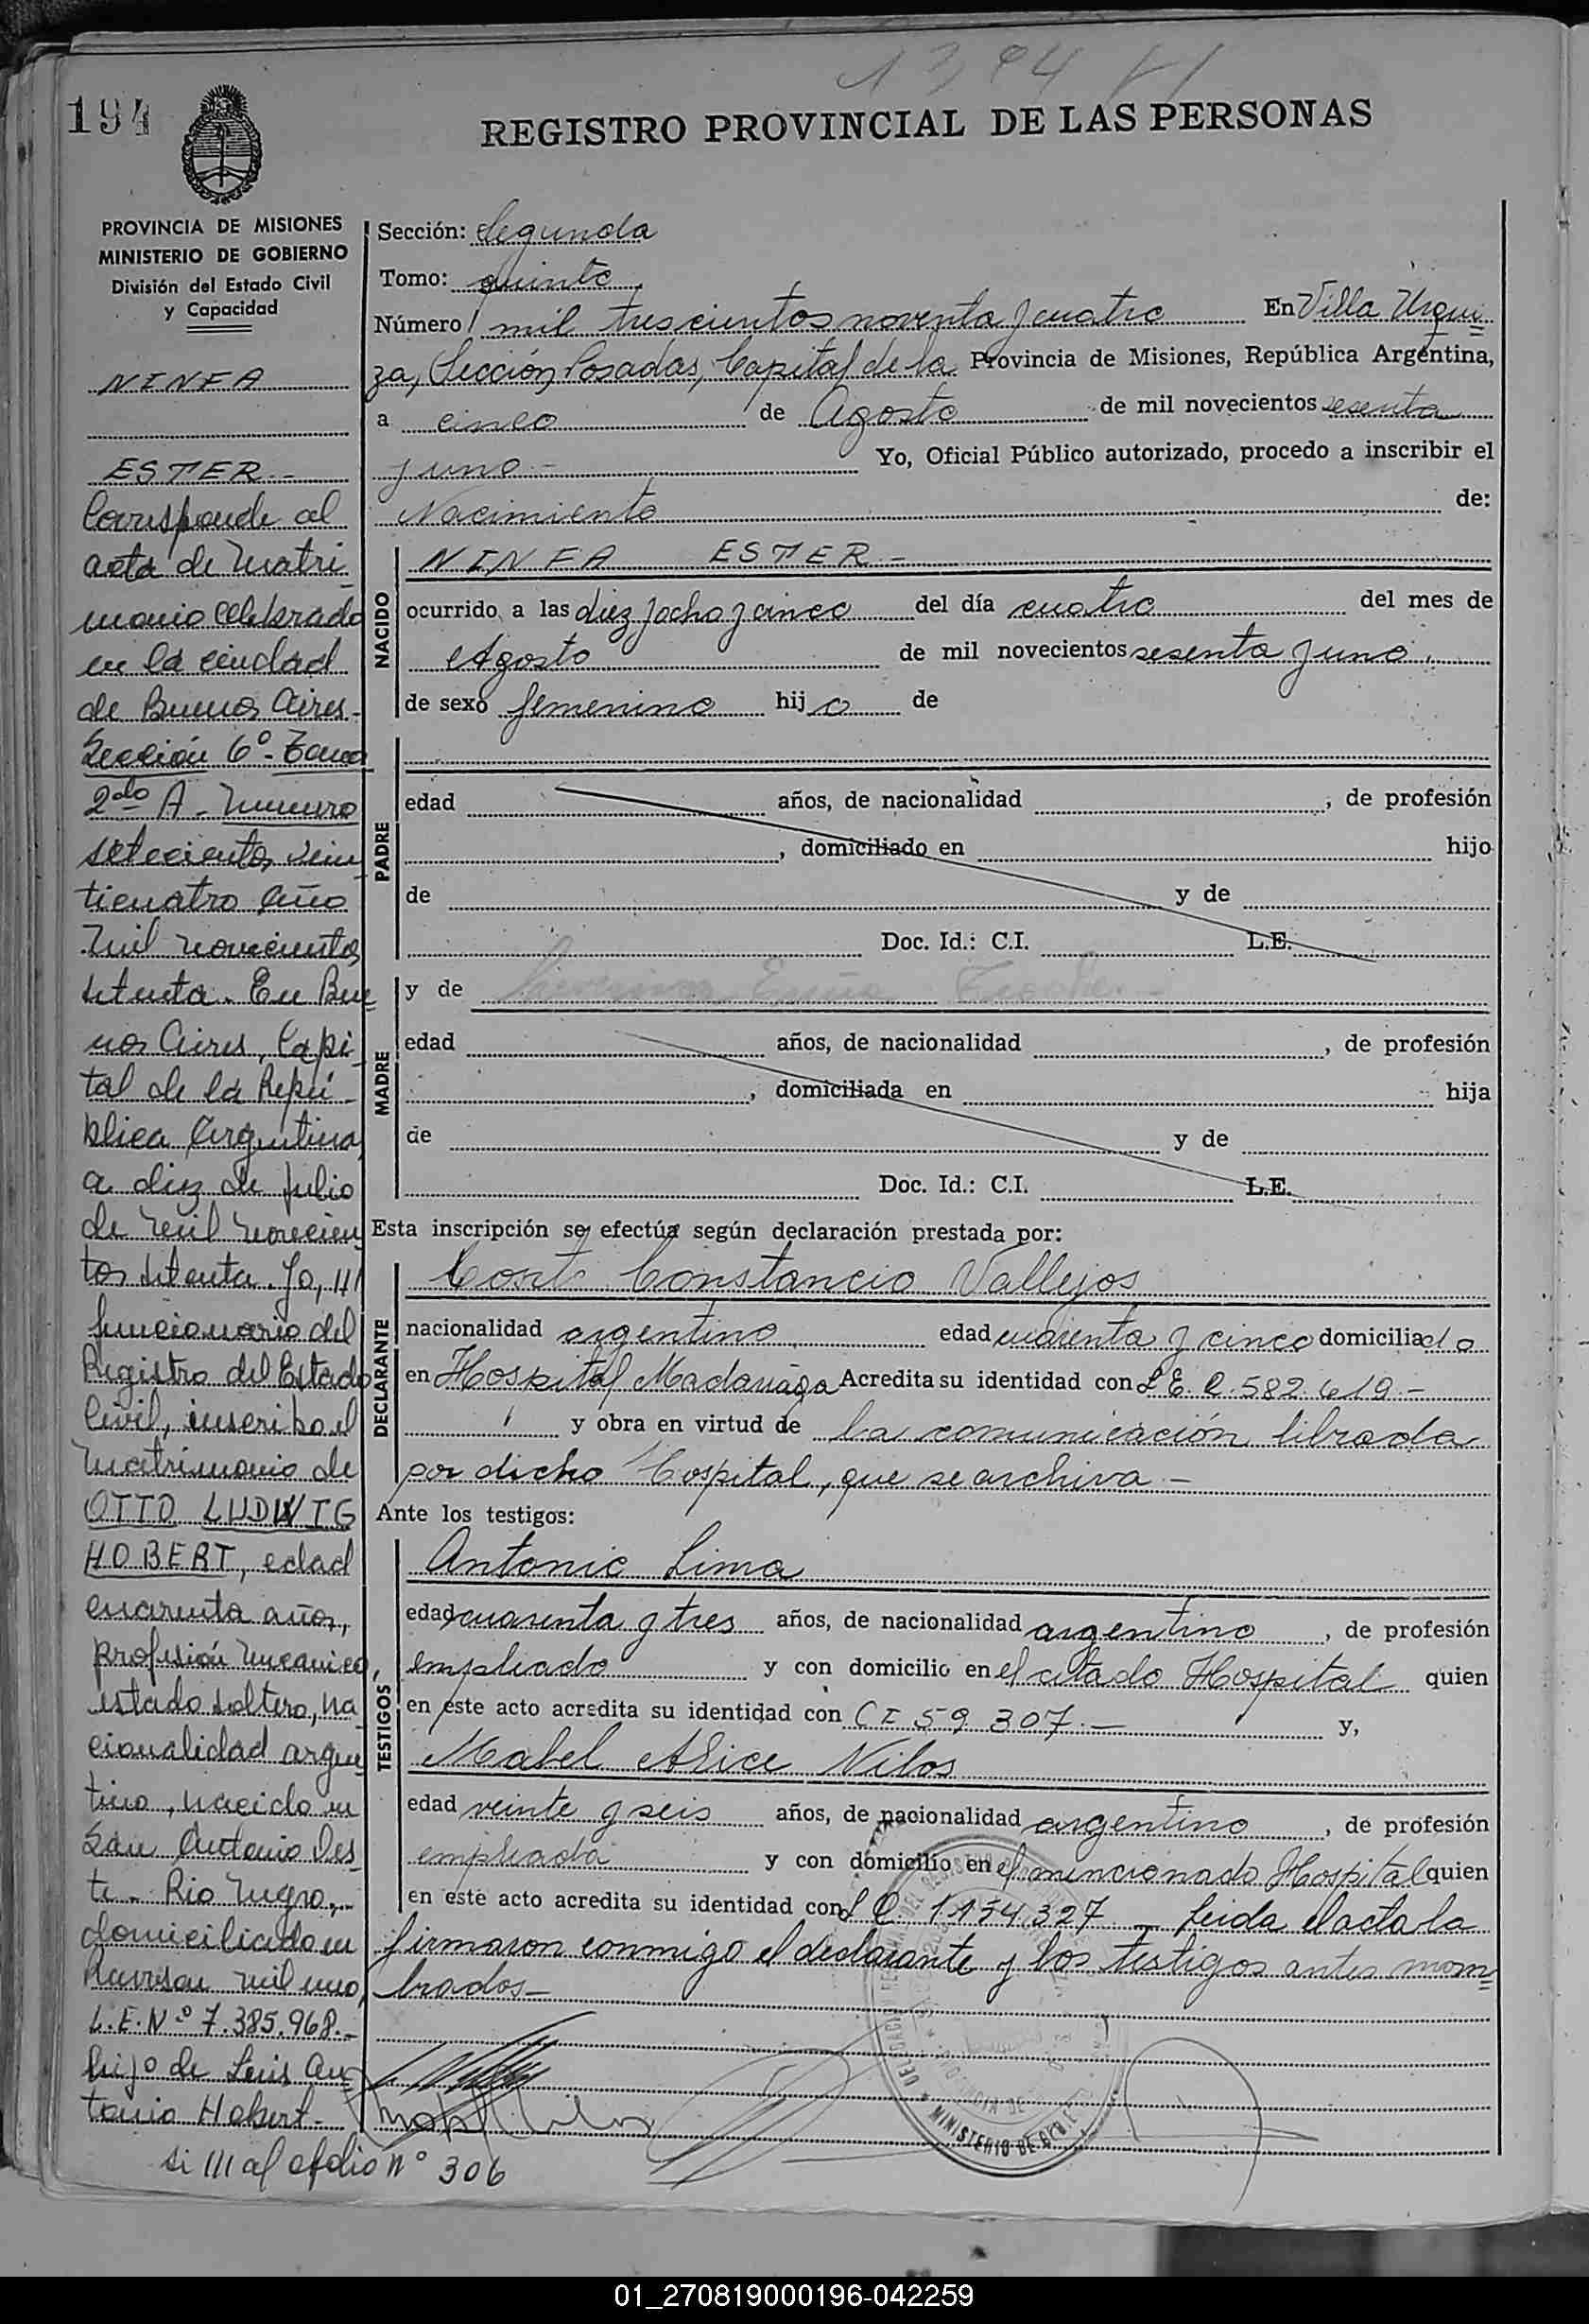 1394 V/
194
REGISTRO PROVINCIAL DE LAS PERSONAS
PROVINCIA DE MISIONES
MINISTERIO DE GOBIERNO
División del Estado Civil
y Capacidad
NINFA
ESTER.-
Corresponde al
acta de Matri
monio celebrado
en la ciudad
de Buenos Aires-
Sección 6º- Tomo
2do A - Numero
setecientos vein
ticuatro año
Mil novecientos
setenta. En Bue
nos Aires, Capi
tal de la Repú-
blica Argentina,
a diez de Julio
de mil novecien
tos setenta. Yo, ///
funcionario del
Registro del Estado
Civil, inscribo el
Matrimonio de
OTTO LUDWIG
HOBERT, edad
cuarenta años,
profesión mecanico,
estado soltero, na
cionalidad argen
tino, nacido en
San Antonio Oes-
te - Rio Negro,-
domiciliado en
mil uno,
L.E. Nº 7.385.968.-
hijo de Luis An
tonio Hobert-
si /// al folio nº 306
Sección: Segunda
Tomo: quinto
Número mil trescientos noventa y cuatro En Villa Urqui
za, Sección Posadas, Capital de la Provincia de Misiones, República Argentina,
a cinco de Agosto de mil novecientos sesenta
y uno.- Yo, Oficial Público autorizado, procedo a inscribir el
Nacimiento de:
NACIDO
NINFA ESTER-
ocurrido a las diez y ocho y cinco del día cuatro del mes de
Agosto de mil novecientos sesenta y uno,
de sexo femenino hij a de
PADRE
edad años, de nacionalidad , de profesión
, domiciliado en hijo
de y de
Doc. Id.: C.I. L.E.
MADRE
y de
edad años, de nacionalidad , de profesión
, domiciliada en hija
de y de
Doc. Id.: C.I. L.E.
Esta inscripción se efectúa según declaración prestada por:
DECLARANTE
Constancio Vallejos
nacionalidad argentino edad cuarenta y cinco domiciliado
en Hospital Madariaga Acredita su identidad con L.E. 2.582.619.-
y obra en virtud de la comunicación librada
por dicho Hospital, que se archiva-
Ante los testigos:
TESTIGOS
Antonio Lima
edad cuarenta y tres años, de nacionalidad argentino , de profesión
empleado y con domicilio en el citado Hospital quien
en este acto acredita su identidad con CI 59 307.- y,
Mabel Alice Nilos
edad veinte y seis años, de nacionalidad argentino , de profesión
empleada y con domicilio en el mencionado Hospital quien
en este acto acredita su identidad con L C. 1.154.327 - Leida el acta la
firmaron conmigo el declarante y los testigos antes nom
brados-
MINISTERIO DE GOBIERNO
01_270819000196-042259